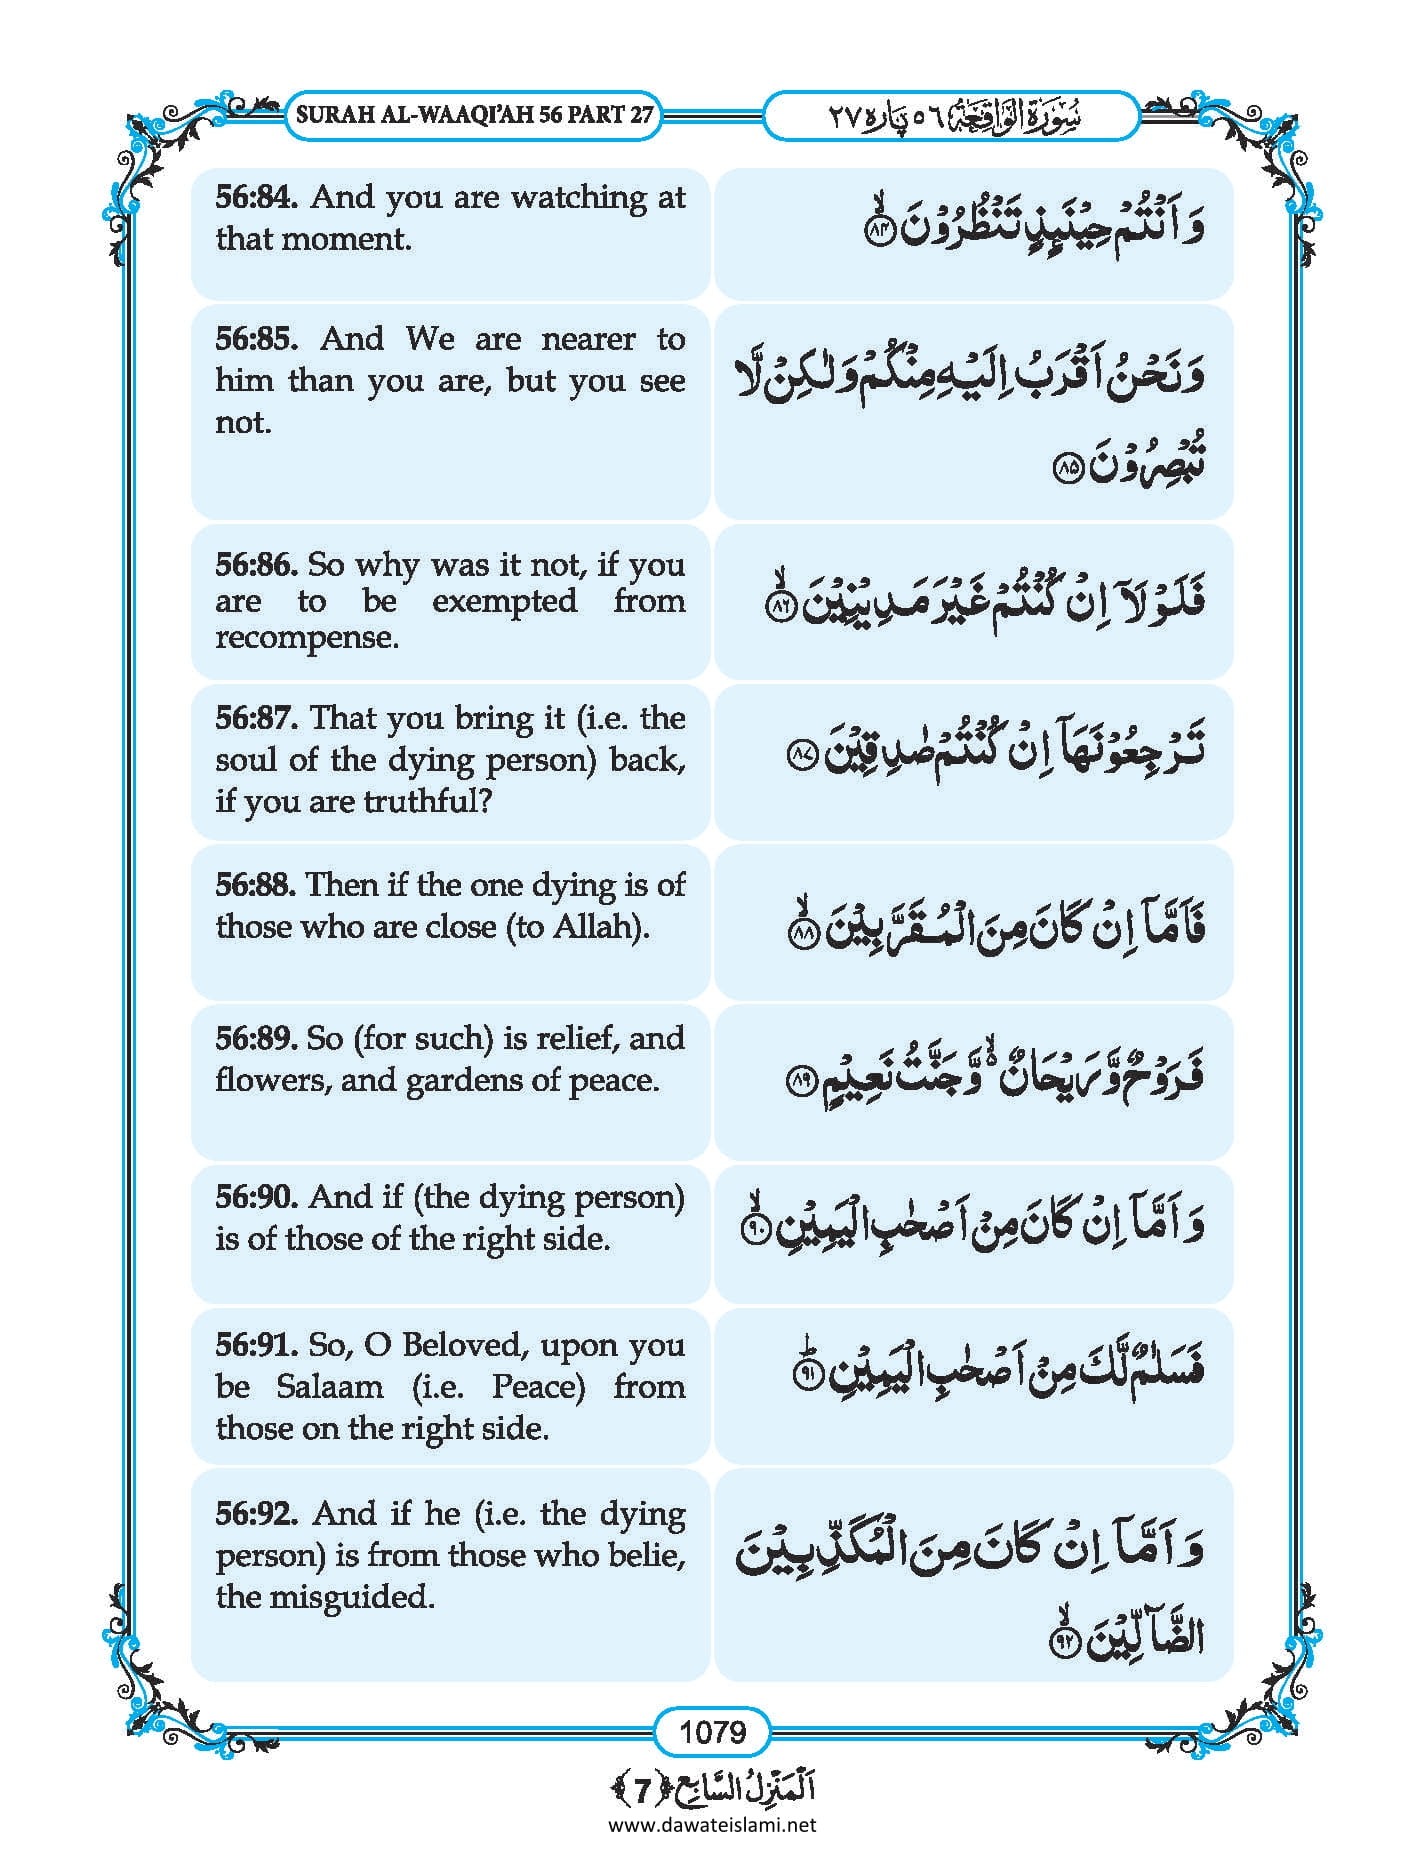 SURAH AL-WAAQI'AH 56 PART 27
سُوْرَةُ الْوَاقِعَة ٥٦ پَاره ٢٧
56:84. And you are watching at
that moment.
وَ اَنْتُمْ حِیْنَىِٕذٍ تَنْظُرُوْنَ ۙ﴿۸۴﴾
56:85. And We are nearer to
him than you are, but you see
not.
وَ نَحْنُ اَقْرَبُ اِلَیْهِ مِنْكُمْ وَ لٰكِنْ لَّا
تُبْصِرُوْنَ ﴿۸۵﴾
56:86. So why was it not, if you
are to be exempted from
recompense.
فَلَوْ لَاۤ اِنْ كُنْتُمْ غَیْرَ مَدِیْنِیْنَ ۙ﴿۸۶﴾
56:87. That you bring it (i.e. the
soul of the dying person) back,
if you are truthful?
تَرْجِعُوْنَهَاۤ اِنْ كُنْتُمْ صٰدِقِیْنَ ﴿۸۷﴾
56:88. Then if the one dying is of
those who are close (to Allah).
فَاَمَّاۤ اِنْ كَانَ مِنَ الْمُقَرَّبِیْنَ ۙ﴿۸۸﴾
56:89. So (for such) is relief, and
flowers, and gardens of peace.
فَرَوْحٌ وَّ رَیْحَانٌ ۬ۙ وَّ جَنَّتُ نَعِیْمٍ ﴿۸۹﴾
56:90. And if (the dying person)
is of those of the right side.
وَ اَمَّاۤ اِنْ كَانَ مِنْ اَصْحٰبِ الْیَمِیْنِ ۙ﴿۹۰﴾
56:91. So, O Beloved, upon you
be Salaam (i.e. Peace) from
those on the right side.
فَسَلٰمٌ لَّكَ مِنْ اَصْحٰبِ الْیَمِیْنِ ؕ﴿۹۱﴾
56:92. And if he (i.e. the dying
person) is from those who belie,
the misguided.
وَ اَمَّاۤ اِنْ كَانَ مِنَ الْمُكَذِّبِیْنَ
الضَّآلِّیْنَ ۙ﴿۹۲﴾
1079
اَلْمَنْزِلُ السَّابِع ﴿7﴾
www.dawateislami.net